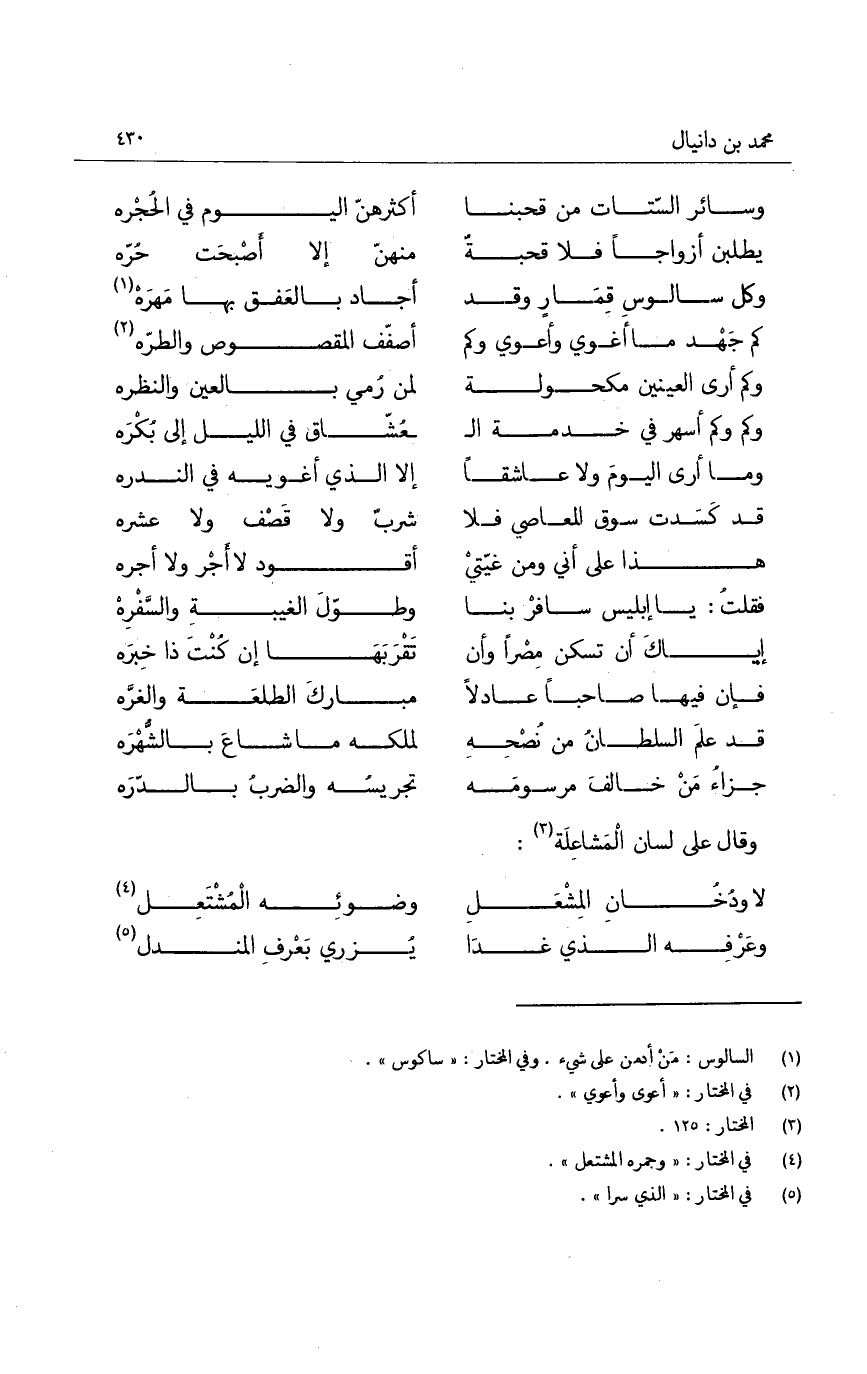 محمد بن دانيال ٤٣٠
وسائر السّتات من قحبنا أكثرهنّ اليوم في الحُجْره
يطلبن أزواجاً فلا قحبةٌ منهنّ إلا أَصْبحَت حُرّه
وكل سالوسِ قِمَارٍ وقد أجاد بالعَفق بها مَهرَهْ(١)
كم جَهْد ما أغوي وأعوي وكم أصفّف المقصوص والطرّه(٢)
وكم أرى العينين مكحولة لمن رُمي بالعين والنظره
وكم وكم أسهر في خدمة الـ ـعُشّاق في الليل إلى بُكْرَه
وما أرى اليومَ ولا عاشقاً إلا الذي أغويه في الندره
قد كَسَدت سوق المعاصي فلا شربٌ ولا قَصْف ولا عشره
هذا على أني ومن غَيّتيْ أقود لا أَجْر ولا أجره
فقلتُ : يا إبليس سافرْ بنا وطوّلَ الغيبة والسَّفْرهْ
إياكَ أن تسكن مِصْراً وأن تَقْربَهَا إن كُنْتَ ذا خبرَه
فإن فيها صاحباً عادلاً مباركَ الطلعَة والغرَّه
قد علمَ السلطانُ من نُصْحِهِ لملكه ما شاعَ بالشُّهْرَه
جزاءُ مَنْ خالفَ مرسومَه تجريسُه والضربُ بالدّرَه
وقال على لسان الْمَشاعِلَة(٣) :
لا ودُخُانِ المِشْعَلِ وضوئِه الْمُشْتَعِل(٤)
وعَرْفِه الذي غدَا يُزري بَعْرفِ المندل(٥)
(١) السالوس : مَنْ أدمن على شيء . وفي المختار : « ساكوس » .
(٢) في المختار : « أعوى وأعوي » .
(٣) المختار : ١٢٥ .
(٤) في المختار : « وجمره المشتعل » .
(٥) في المختار : « الذي سرا » .